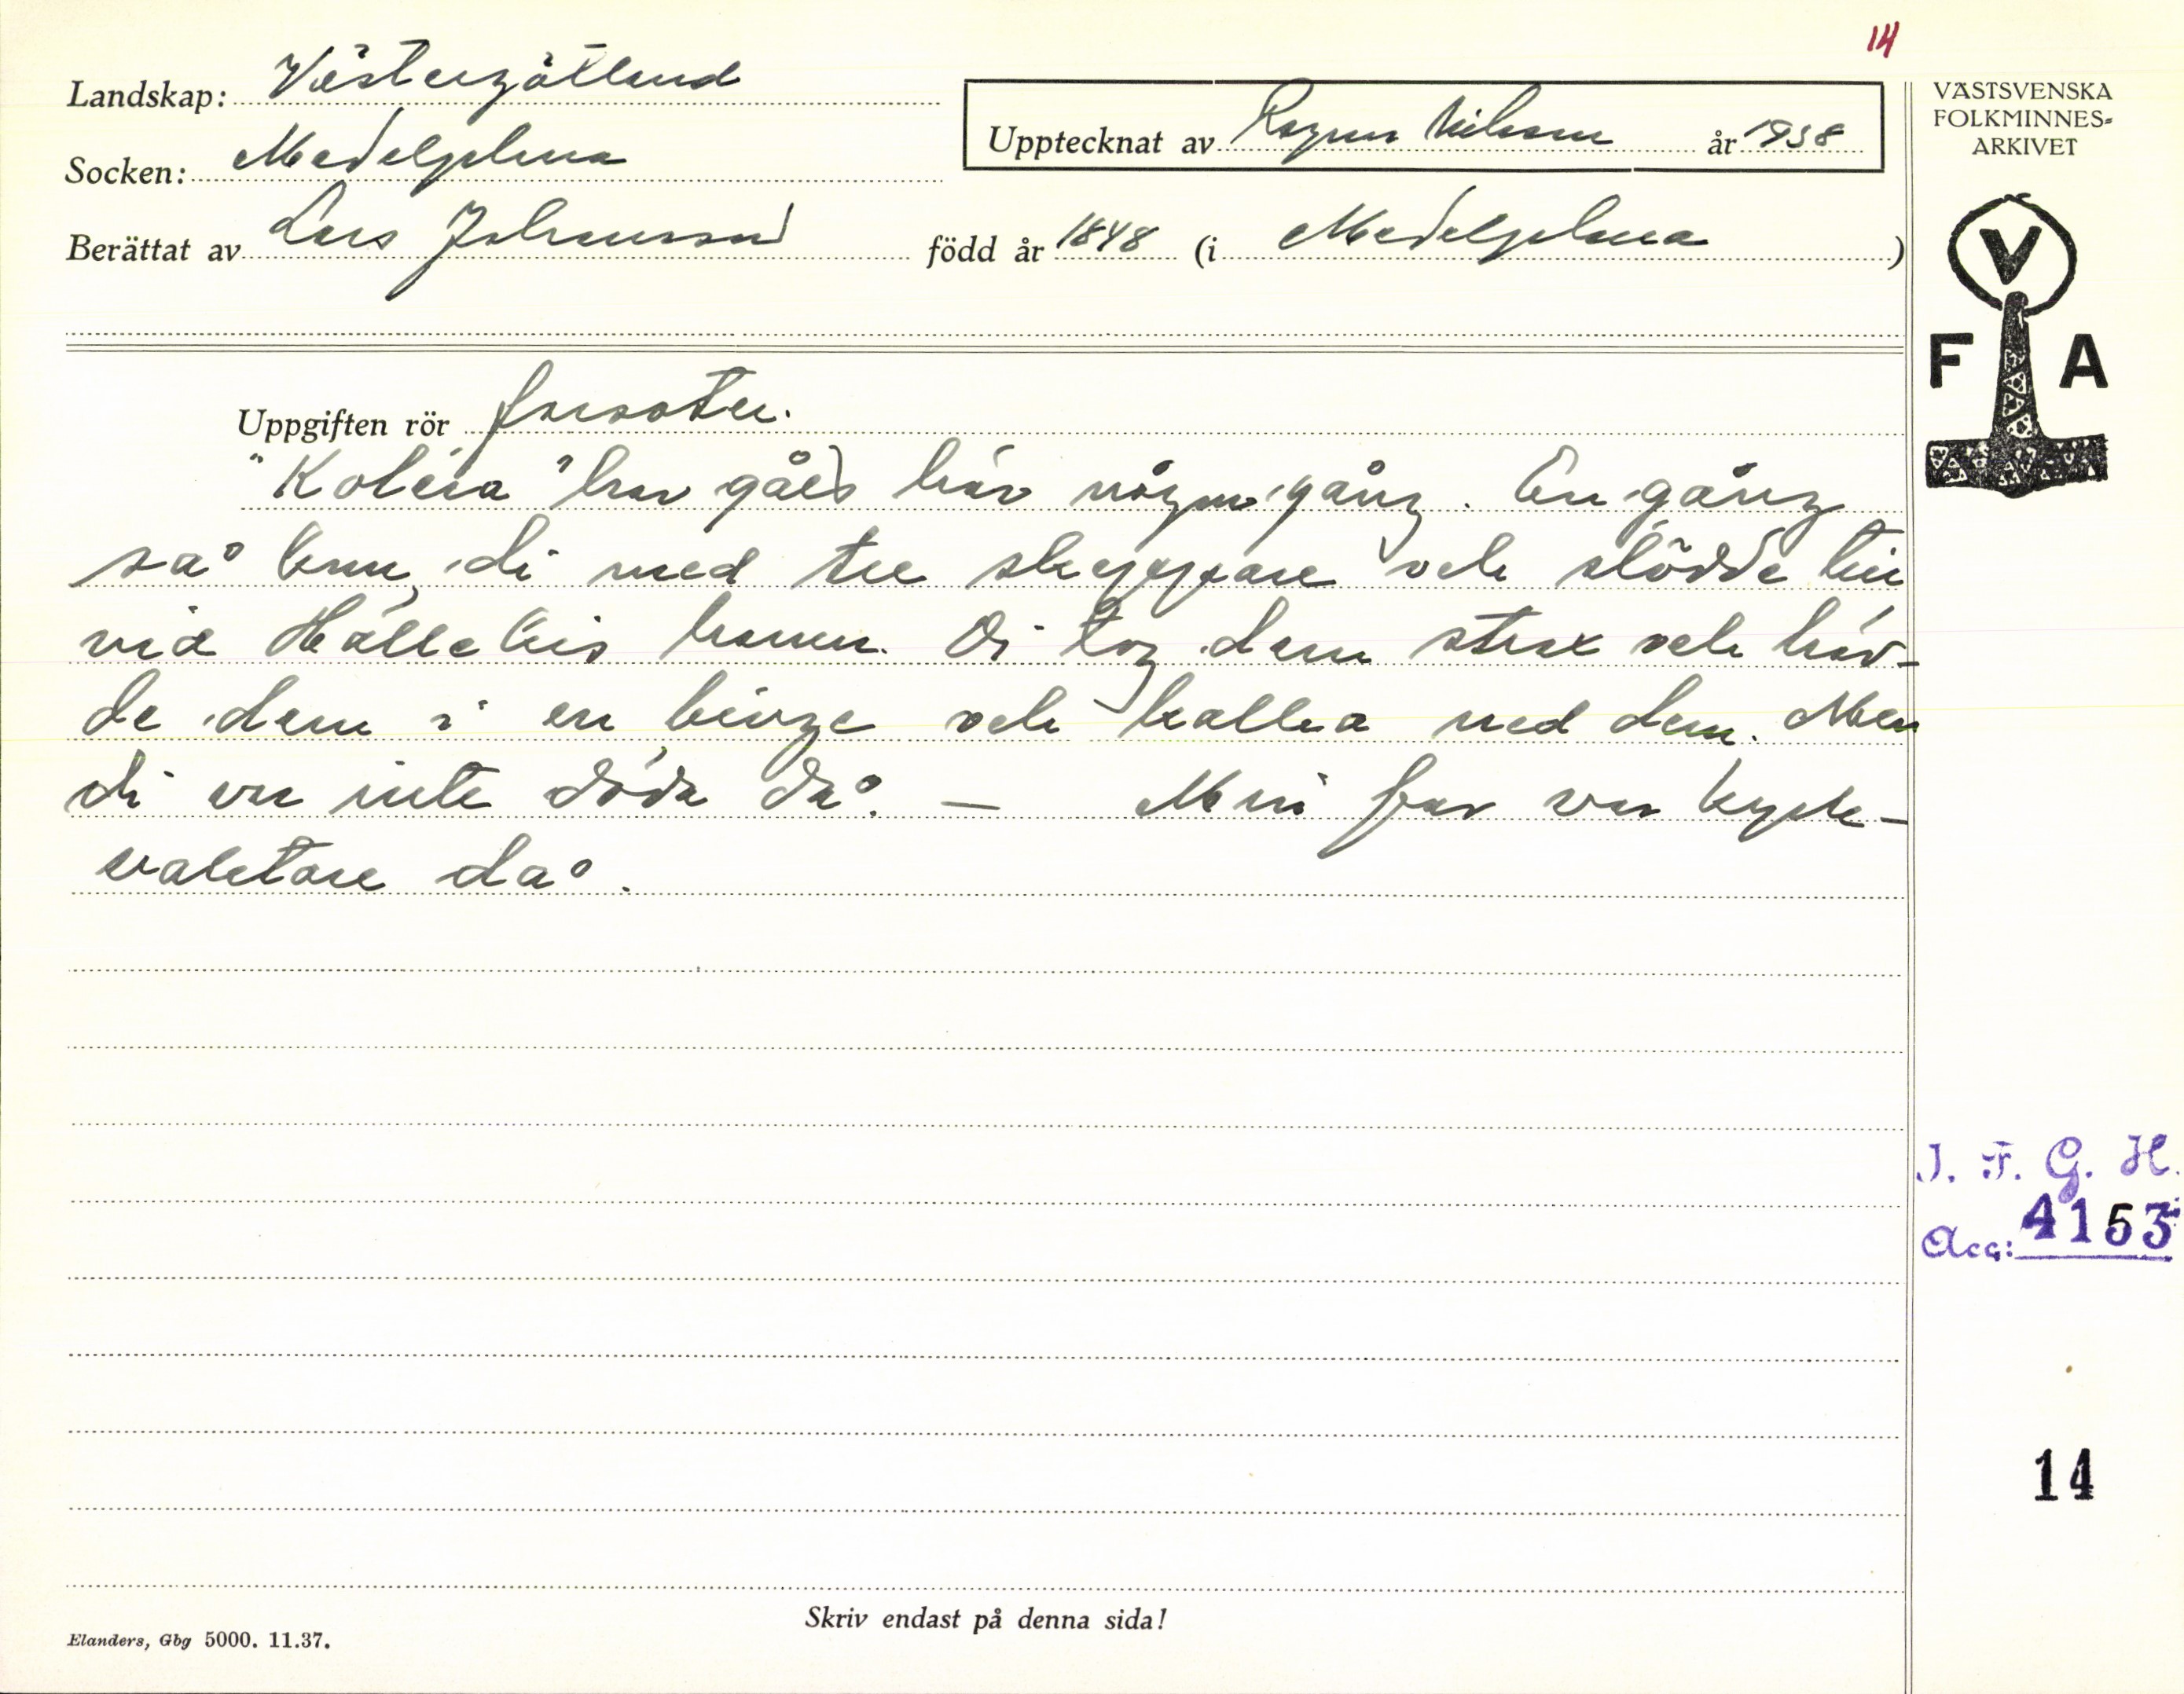 14
Landskap: Västergötland
Socken: Medelplana
Upptecknat av Ragnar Nilsson år 1938
Berättat av Lars Johansson född år 1848 (i Medelplana)
VÄSTSVENSKA
FOLKMINNES-
ARKIVET
V
F A
Uppgiften rör farsoter.
"Koléra" har gått här någon gång. En gång
så kom di med tre skeppare och stödde hit
vid Hällekis hamn. Di tog dem strax och häv-
de dem i en binge och kalka ned dem. Men
di var inte döda då. — Min far var kyrk-
vaktare då.
I. F. G. H.
Acc: 4153
14
Skriv endast på denna sida!
Elanders, Gbg 5000. 11.37.